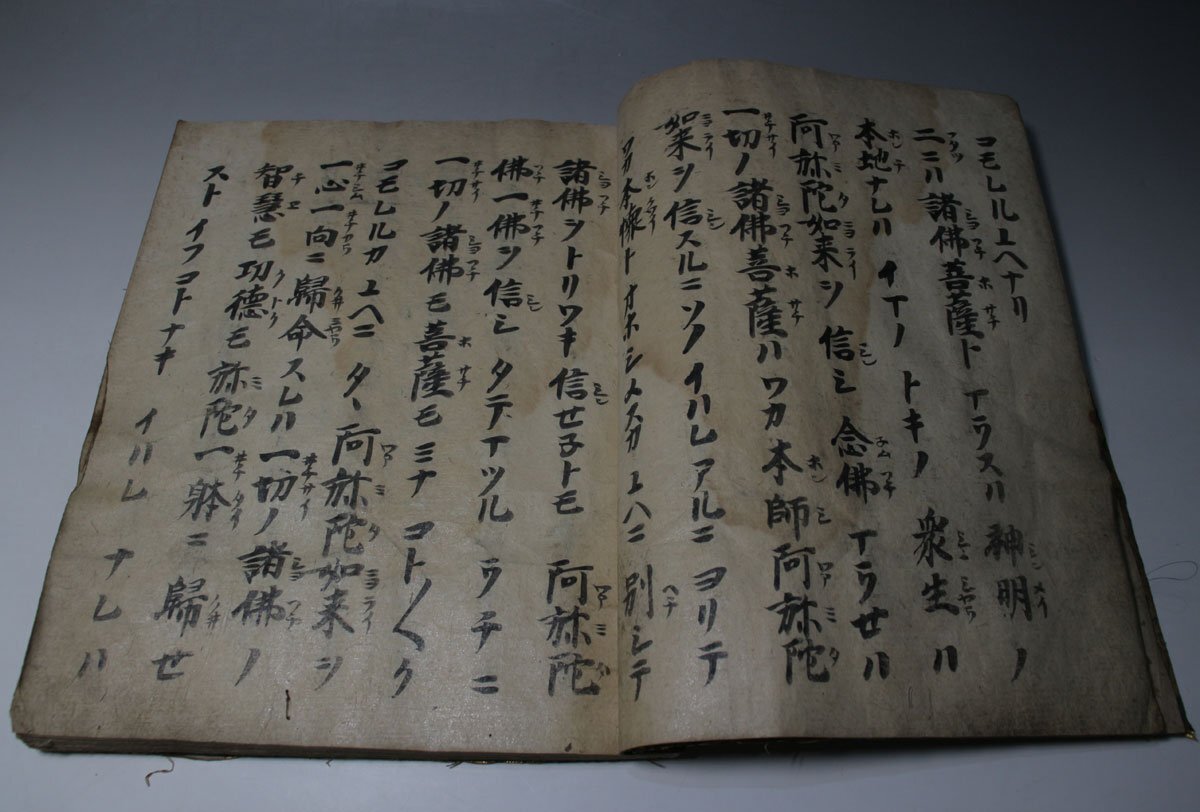 コモレルユヘナリ
二ニハ諸佛菩薩トマウスハ神明ノ
本地ナレハイマノトキノ衆生ハ
阿弥陀如来ヲ信シ念佛マウセハ
一切ノ諸佛菩薩ハワカ本師阿弥陀
如来ヲ信スルニソノイハレアルニヨリテ
ワカ本懐トオホシメスカユヘニ別シテ
諸佛ヲトリワキ信セ子トモ阿弥陀
佛一佛ヲ信シタテマツルウチニ
一切ノ諸佛モ菩薩モミナコト〱ク
コモレルカユヘニタヽ阿弥陀如来ヲ
一心一向ニ歸命スレハ一切ノ諸佛ノ
智慧モ功徳モ弥陀一躰ニ歸セ
ストイフコトナキイハレナレハ